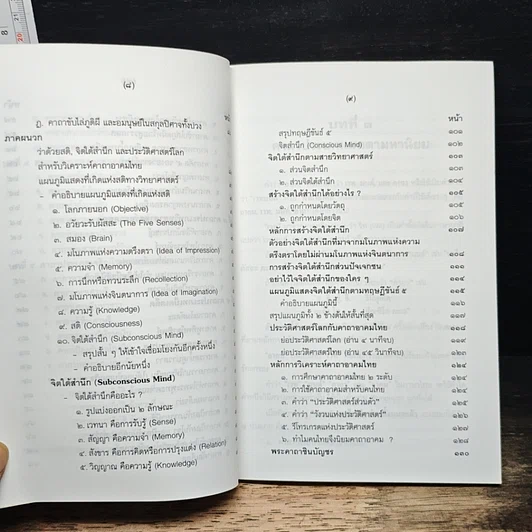 (๘)
ฎ. คาถาขับไล่ภูติผี และอมนุษย์ในสกุลปีศาจทั้งปวง
ภาคผนวก
ว่าด้วยสติ, จิตใต้สำนึก และประวัติศาสตร์โลก
สำหรับวิเคราะห์คาถาอาคมไทย
แผนภูมิแสดงที่เกิดแห่งสติทางวิทยาศาสตร์
- คำอธิบายแผนภูมิแสดงที่เกิดแห่งสติ
๑. โลกภายนอก (Objective)
๒. อวัยวะรับผัสสะ (The Five Senses)
๓. สมอง (Brain)
๔. มโนภาพแห่งความตรึงตรา (Idea of Impression)
๕. ความจำ (Memory)
๖. การนึกหรือทวนระลึก (Recollection)
๗. มโนภาพแห่งจินตนาการ (Idea of Imagination)
๘. ความรู้ (Knowledge)
๙. สติ (Consciousness)
๑๐. จิตใต้สำนึก (Subconscious Mind)
- สรุปสั้น ๆ ให้เข้าใจเชื่อมโยงกันอีกครั้งหนึ่ง
- คำอธิบายอีกนัยหนึ่ง
จิตใต้สำนึก (Subconscious Mind)
- จิตใต้สำนึกคืออะไร ?
๑. รูปแบ่งออกเป็น ๒ ลักษณะ
๒. เวทนา คือการรับรู้ (Sense)
๓. สัญญา คือความจำ (Memory)
๔. สังขาร คือการคิดหรือการปรุงแต่ง (Relation)
๕. วิญญาณ คือความรู้ (Knowledge)
(๙)
หน้า
สรุปทฤษฎีขันธ์ ๕ ๑๐๑
จิตสำนึก (Conscious Mind) ๑๐๒
จิตใต้สำนึกตามสายวิทยาศาสตร์ ๑๐๓
๑. ส่วนจิตสำนึก
๒. ส่วนจิตใต้สำนึก ๑๐๔
สร้างจิตใต้สำนึกได้อย่างไร ? ๑๐๕
๑. ถูกกำหนดโดยวัตถุ
๒. ถูกกำหนดโดยจิต ๑๐๖
หลักการสร้างจิตใต้สำนึก ๑๐๗
ตัวอย่างจิตใต้สำนึกที่มาจากมโนภาพแห่งความ
ตรึงตราโดยไม่ผ่านมโนภาพแห่งจินตนาการ ๑๐๘
การสร้างจิตใต้สำนึกส่วนปัจเจกชน ๑๑๑
อย่าไว้ใจจิตใต้สำนึกของใคร ๆ ๑๑๔
แผนภูมิแสดงจิตใต้สำนึกตามทฤษฎีขันธ์ ๕ ๑๑๕
คำอธิบายแผนภูมินี้ ๑๑๖
สรุปแผนภูมิทั้ง ๒ ข้างต้นให้สั้นที่สุด ๑๑๗
ประวัติศาสตร์โลกกับคาถาอาคมไทย ๑๑๘
ย่อประวัติศาสตร์โลก (อ่าน ๔ นาทีจบ)
ย่อประวัติศาสตร์ไทย (อ่าน ๔๕ วินาทีจบ) ๑๒๓
หลักการวิเคราะห์คาถาอาคมไทย
๑. การศึกษาคาถาอาคมไทย ๒ ระดับ ๑๒๔
๒. การใช้คาถาอาคมสำหรับคนไทย ๑๒๕
๓. คำว่า "ประวัติศาสตร์ส่วนตัว"
๔. คำว่า "รังวนแห่งประวัติศาสตร์" ๑๒๖
๕. รีโทรเกรดแห่งประวัติศาสตร์ ๑๒๗
๖. ทำไมคนไทยจึงนิยมคาถาอาคม ? ๑๒๘
พระคาถาชินบัญชร ๑๓๐